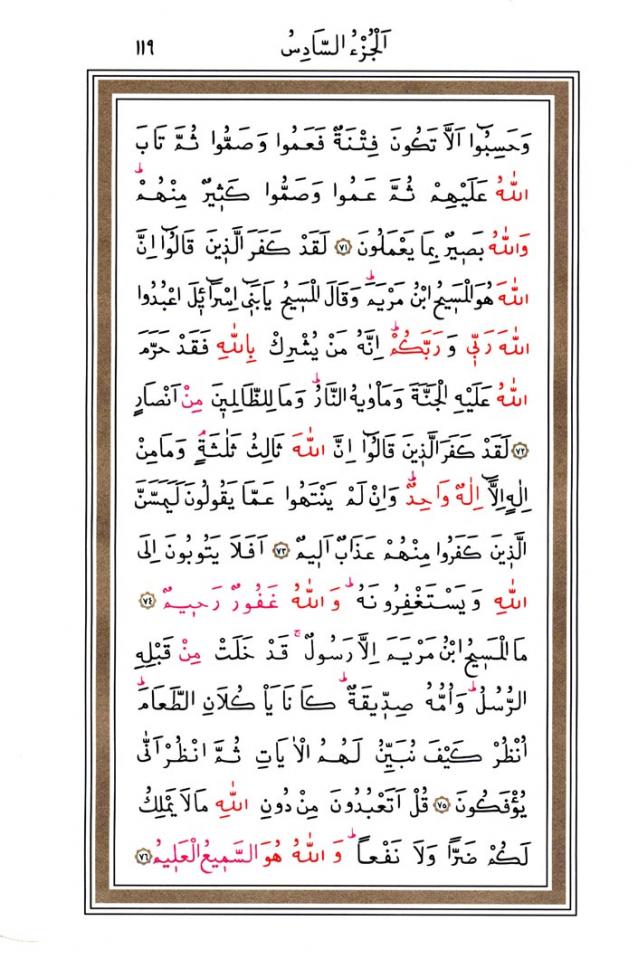 اَلْجُزْءُ السَّادِسُ
١١٩
وَحَسِبُٓوا اَلَّا تَكُونَ فِتْنَةٌ فَعَمُوا وَصَمُّوا ثُمَّ تَابَ
اللّٰهُ عَلَيْهِمْ ثُمَّ عَمُوا وَصَمُّوا كَث۪يرٌ مِنْهُمْۜ
وَاللّٰهُ بَص۪يرٌ بِمَا يَعْمَلُونَ ﴿٧١﴾ لَقَدْ كَفَرَ الَّذ۪ينَ قَالُٓوا اِنَّ
اللّٰهَ هُوَ الْمَس۪يحُ ابْنُ مَرْيَمَۜ وَقَالَ الْمَس۪يحُ يَابَن۪ٓي اِسْرَٓائ۪لَ اعْبُدُوا
اللّٰهَ رَبّ۪ي وَرَبَّكُمْۜ اِنَّهُ مَنْ يُشْرِكْ بِاللّٰهِ فَقَدْ حَرَّمَ
اللّٰهُ عَلَيْهِ الْجَنَّةَ وَمَاْوٰيهُ النَّارُۜ وَمَا لِلظَّالِم۪ينَ مِنْ اَنْصَارٍ
﴿٧٢﴾ لَقَدْ كَفَرَ الَّذ۪ينَ قَالُٓوا اِنَّ اللّٰهَ ثَالِثُ ثَلٰثَةٍۢ وَمَا مِنْ
اِلٰهٍ اِلَّٓا اِلٰهٌ وَاحِدٌۜ وَاِنْ لَمْ يَنْتَهُوا عَمَّا يَقُولُونَ لَيَمَسَّنَّ
الَّذ۪ينَ كَفَرُوا مِنْهُمْ عَذَابٌ اَل۪يمٌ ﴿٧٣﴾ اَفَلَا يَتُوبُونَ اِلَى
اللّٰهِ وَيَسْتَغْفِرُونَهُۜ وَاللّٰهُ غَفُورٌ رَح۪يمٌ ﴿٧٤﴾
مَا الْمَس۪يحُ ابْنُ مَرْيَمَ اِلَّا رَسُولٌۚ قَدْ خَلَتْ مِنْ قَبْلِهِ
الرُّسُلُۜ وَاُمُّهُ صِدّ۪يقَةٌۜ كَانَا يَاْكُلَانِ الطَّعَامَۜ
اُنْظُرْ كَيْفَ نُبَيِّنُ لَهُمُ الْاٰيَاتِ ثُمَّ انْظُرْ اَنّٰى
يُؤْفَكُونَ ﴿٧٥﴾ قُلْ اَتَعْبُدُونَ مِنْ دُونِ اللّٰهِ مَا لَا يَمْلِكُ
لَكُمْ ضَرًّا وَلَا نَفْعاًۜ وَاللّٰهُ هُوَ السَّم۪يعُ الْعَل۪يمُ ﴿٧٦﴾